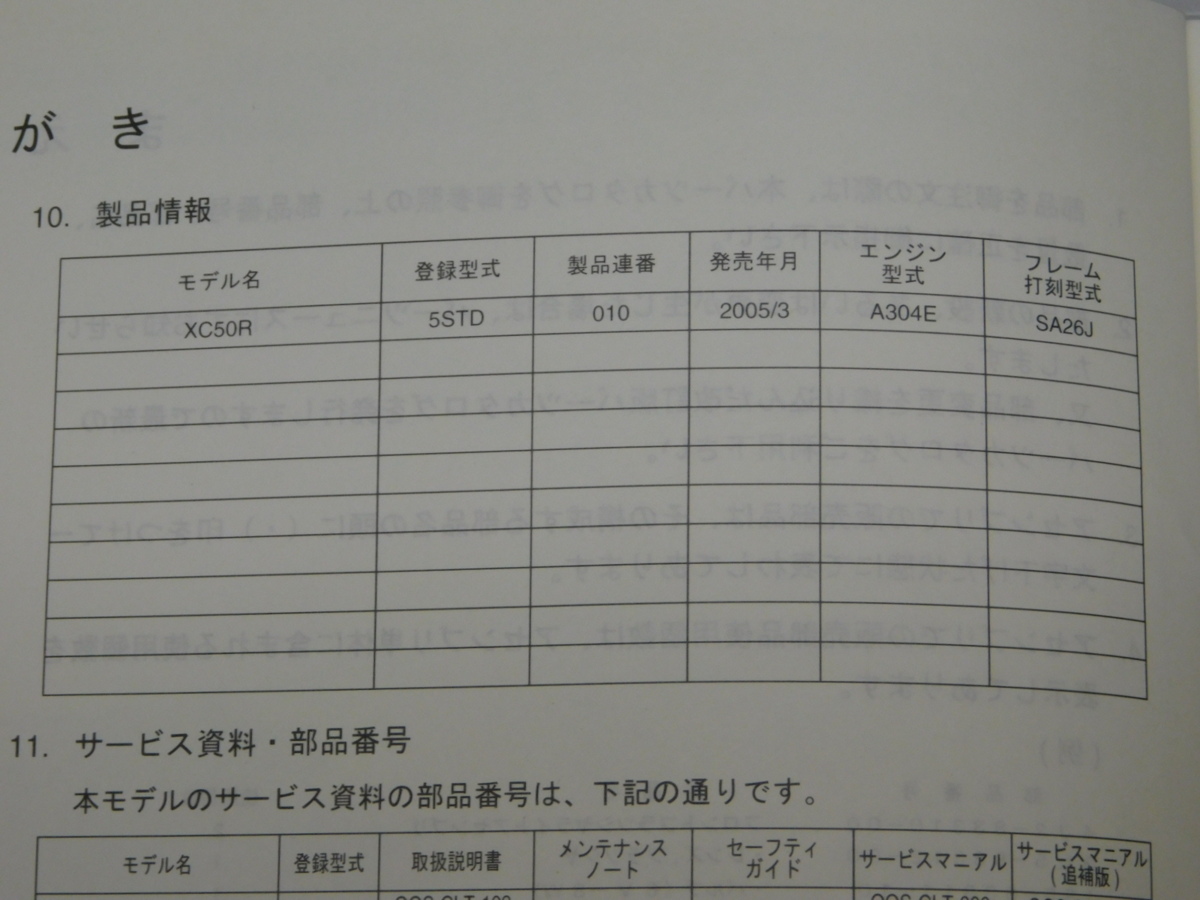 がき
10. 製品情報
モデル名 登録型式 製品連番 発売年月 エンジン型式 フレーム打刻型式
XC50R 5STD 010 2005/3 A304E SA26J
11. サービス資料・部品番号
本モデルのサービス資料の部品番号は、下記の通りです。
モデル名 登録型式 取扱説明書 メンテナンスノート セーフティガイド サービスマニアル サービスマニアル(追補版)